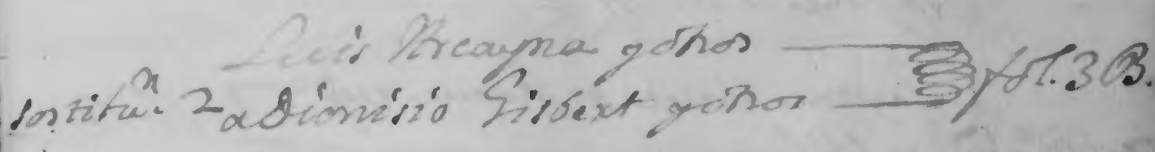 Luis Arcayna y otros
sostitu.n 2 a Dionisio Gisbert y otros fol. 3 B.